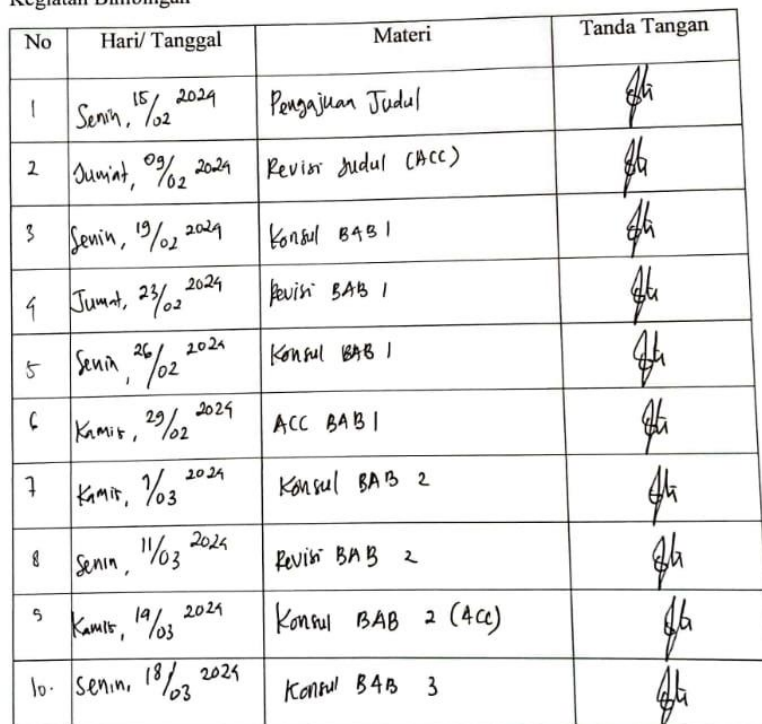 Kegiatan Bimbingan
No Hari/ Tanggal Materi Tanda Tangan
1 Senin, 15/02 2024 Pengajuan Judul
2 Jum'at, 09/02 2024 Revisi Judul (ACC)
3 Senin, 19/02 2024 Konsul BAB 1
4 Jumat, 23/02 2024 Revisi BAB 1
5 Senin, 26/02 2024 Konsul BAB 1
6 Kamis, 29/02 2024 ACC BAB 1
7 Kamis, 7/03 2024 Konsul BAB 2
8 Senin, 11/03 2024 Revisi BAB 2
9 Kamis, 14/03 2024 Konsul BAB 2 (Acc)
10. Senin, 18/03 2024 Konsul BAB 3